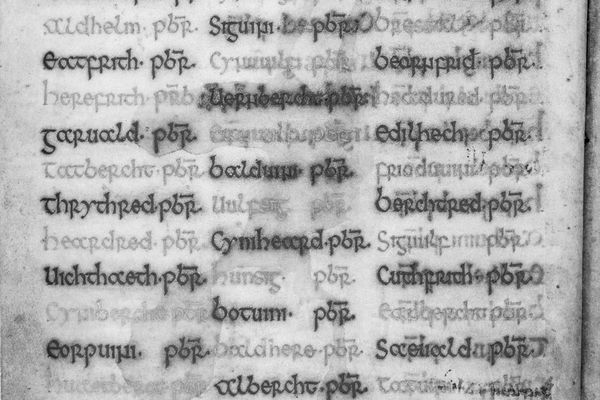 aeldhelm pb̄r. Siguini · pb̄r. pb̄r.
eatfrith · pb̄r. pb̄r. beornfrid · pb̄r.
herefrith · pb̄r. Uernbercht · pb̄r. pb̄r.
garuald · pb̄r. edilhech · pb̄r.
tatbercht · pb̄r. balduini · pb̄r. frioduini · pb̄r.
thrythred · pb̄r. Uulfsig pb̄r. berchtred · pb̄r.
heardred · pb̄r. Cynheard · pb̄r. pb̄r.
Uichthaeth · pb̄r. hunsig · pb̄r. Cuthfrith · pb̄r.
Cynibercht · pb̄r. botuini · pb̄r. pb̄r.
eorpuini · pb̄r. baldhere · pb̄r. Saeuald · pb̄r.
albercht · pb̄r.